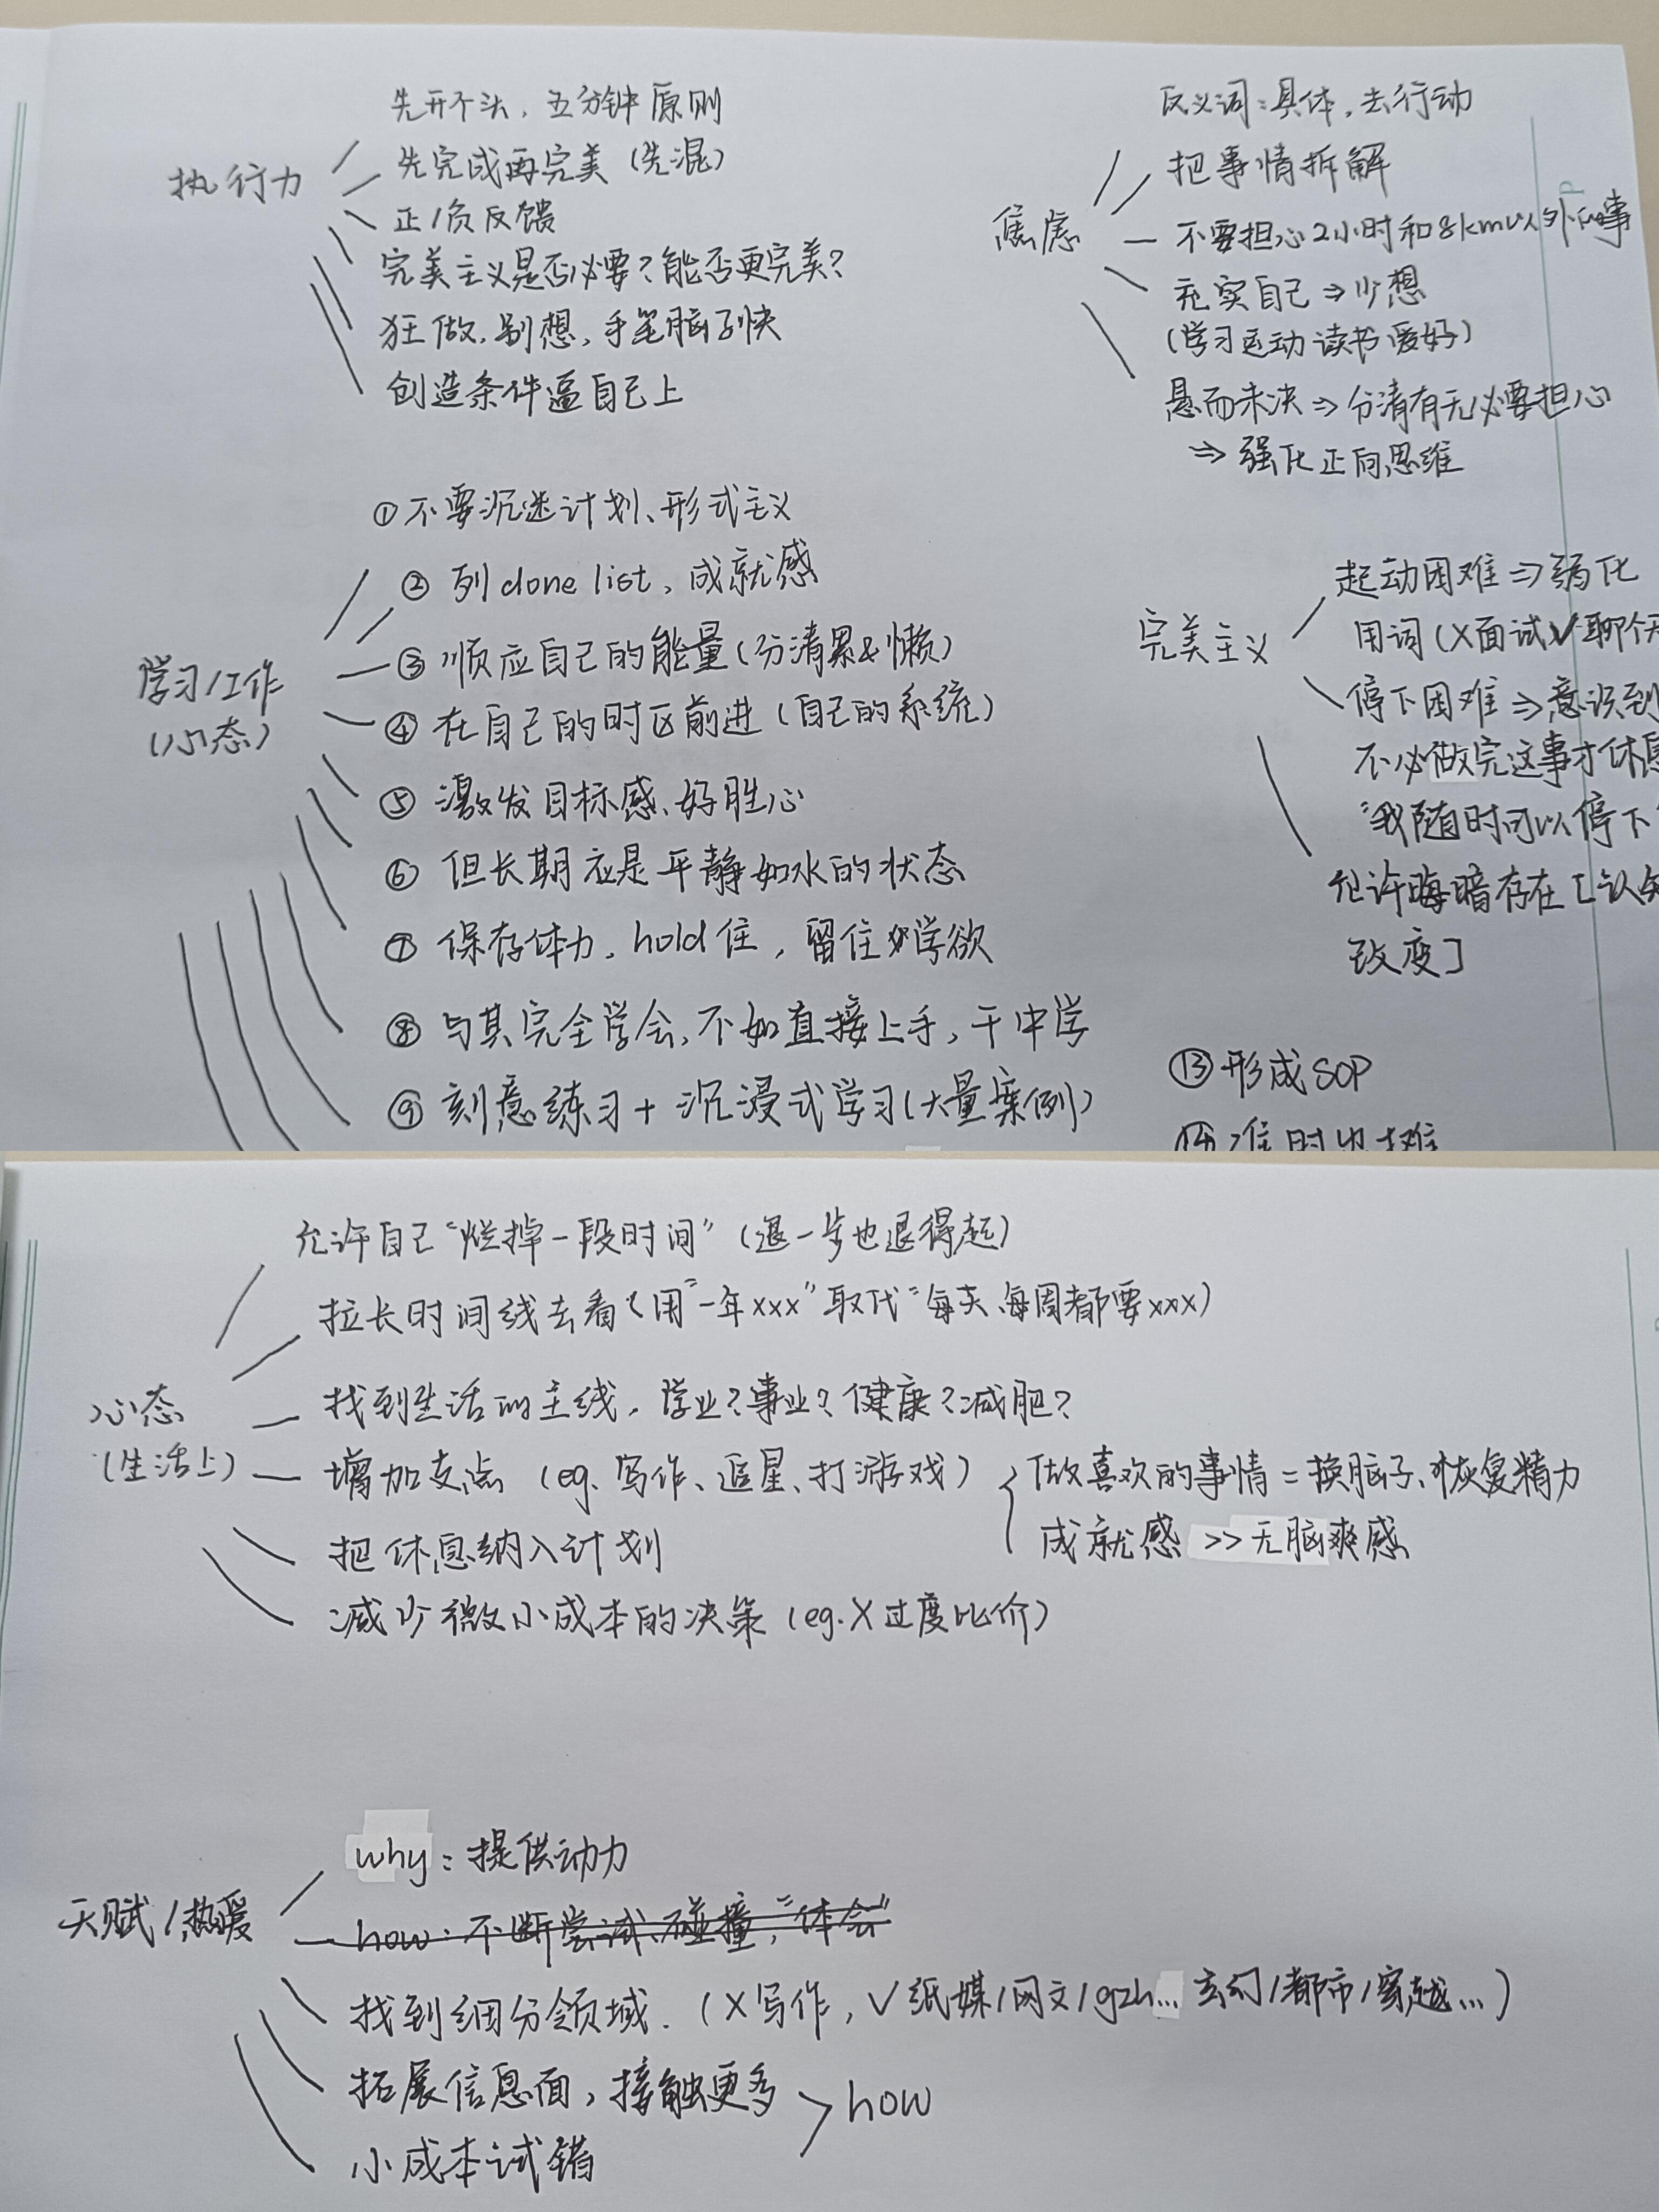 执行力
先开个头，五分钟原则
先完成再完美（先混）
正/负反馈
完美主义是否必要？能否更完美？
狂做，别想，手笔脑子快
创造条件逼自己上
焦虑
反义词：具体，去行动
把事情拆解
不要担心2小时和8km以外的事
充实自己⇒少想
（学习运动读书爱好）
悬而未决⇒分清有无必要担心
⇒强化正向思维
学习/工作
（心态）
①不要沉迷计划、形式主义
②列done list，成就感
③顺应自己的能量（分清累&懒）
④在自己的时区前进（自己的系统）
⑤激发目标感、好胜心
⑥但长期应是平静如水的状态
⑦保存体力，hold住，留住学欲
⑧与其完全学会，不如直接上手，干中学
⑨刻意练习+沉浸式学习（大量案例）
完美主义
起动困难⇒弱化
用词（X面试√聊天
停下困难⇒意识到
不必做完这事才休息
"我随时可以停下
允许晦暗存在[认知
致变]
⑬形成SOP
心态
（生活上）
允许自己"烂掉一段时间"（退一步也退得起）
拉长时间线去看（用"一年xxx"取代"每天、每周都要xxx）
找到生活的主线，学业？事业？健康？减肥？
增加支点（eg.写作、追星、打游戏）
做喜欢的事情=换脑子、恢复精力
成就感>>无脑爽感
把休息纳入计划
减少微小成本的决策（eg.X过度比价）
天赋/热爱
why：提供动力
how：不断尝试、碰撞，"体会"
找到细分领域.（X写作，√纸媒/网文/gzh...玄幻/都市/穿越...）
拓展信息面，接触更多
小成本试错
how